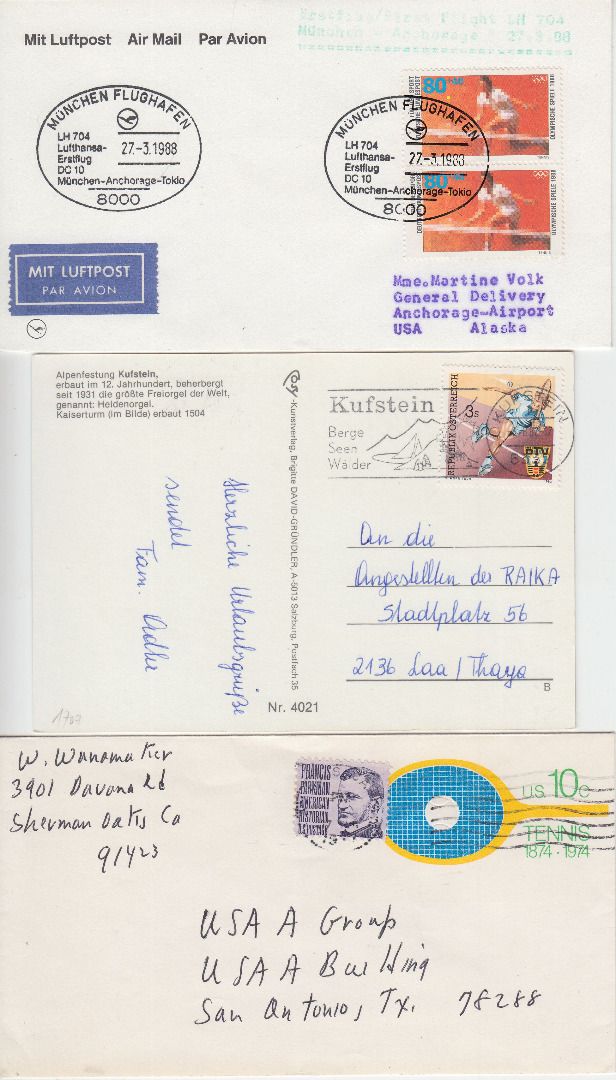 Mit Luftpost Air Mail Par Avion
Erstflug/First Flight LH 704
München - Anchorage 27.3.88
MÜNCHEN FLUGHAFEN
LH 704
Lufthansa-
Erstflug
DC 10
27.-3.1988
München-Anchorage-Tokio
8000
MÜNCHEN FLUGHAFEN
LH 704
Lufthansa-
Erstflug
DC 10
27.-3.1988
München-Anchorage-Tokio
8000
80
OLYMPISCHE SPIELE 1988
80
OLYMPISCHE SPIELE 1988
MIT LUFTPOST
PAR AVION
Mme.Martine Volk
General Delivery
Anchorage-Airport
USA Alaska
Alpenfestung Kufstein,
erbaut im 12. Jahrhundert, beherbergt
seit 1931 die größte Freiorgel der Welt,
genannt: Heldenorgel.
Kaiserturm (im Bilde) erbaut 1504
-Kunstverlag, Brigitte DAVID-GRÜNDLER, A-5013 Salzburg, Postfach 35
Kufstein
Berge
Seen
Wälder
3s
REPUBLIK ÖSTERREICH
ÖTV
KUFSTEIN
Herzliche Urlaubsgrüße
sendet
Fam. Adler
An die
Angestellten der RAIKA
Stadtplatz 56
2136 Laa / Thaya
B
Nr. 4021
W. Wanamaker
3901 Davana Rd
Sherman Oaks Ca
91423
FRANCIS
PARKMAN
AMERICAN
HISTORIAN
U.S. 10c
TENNIS
1874·1974
USAA Group
USAA Building
San Antonio, Tx. 78288